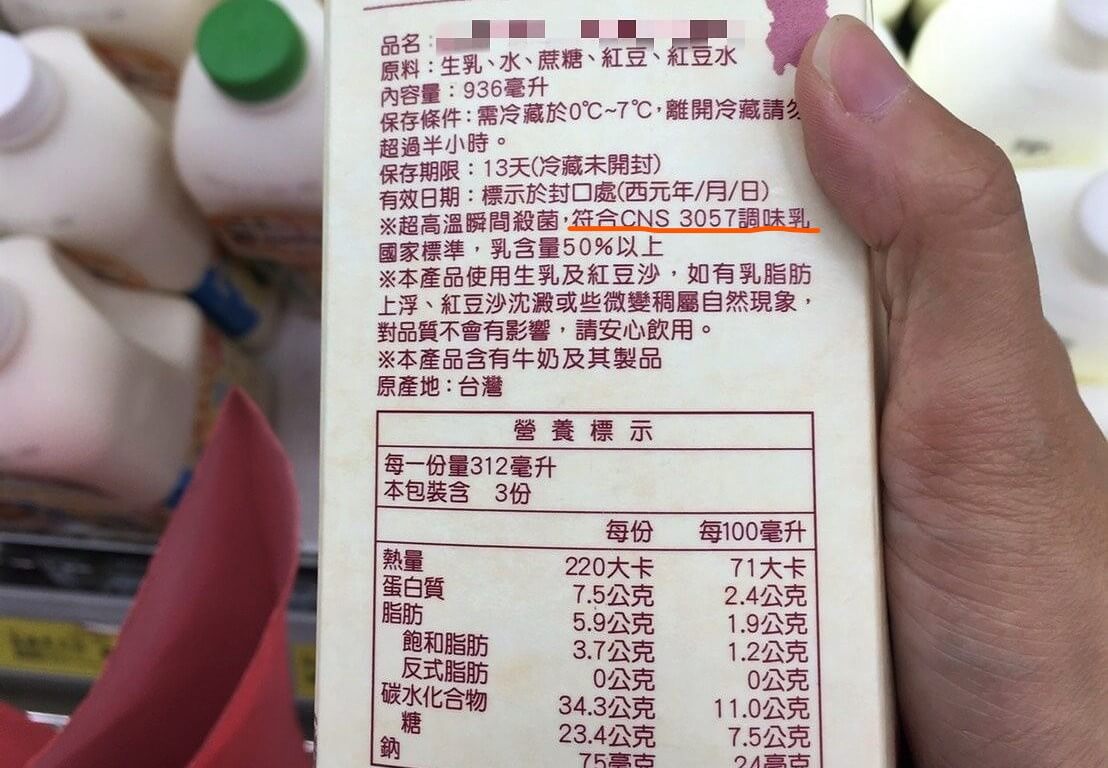 品名:
原料:生乳、水、蔗糖、紅豆、紅豆水
內容量:936毫升
保存條件:需冷藏於0℃~7℃,離開冷藏請勿
超過半小時。
保存期限:13天(冷藏未開封)
有效日期:標示於封口處(西元年/月/日)
※超高溫瞬間殺菌,符合CNS 3057調味乳
國家標準,乳含量50%以上
※本產品使用生乳及紅豆沙,如有乳脂肪
上浮、紅豆沙沈澱或些微變稠屬自然現象,
對品質不會有影響,請安心飲用。
※本產品含有牛奶及其製品
原產地:台灣
營養標示
每一份量312毫升
本包裝含 3份
每份 每100毫升
熱量 220大卡 71大卡
蛋白質 7.5公克 2.4公克
脂肪 5.9公克 1.9公克
飽和脂肪 3.7公克 1.2公克
反式脂肪 0公克 0公克
碳水化合物 34.3公克 11.0公克
糖 23.4公克 7.5公克
鈉 75毫克 24毫克